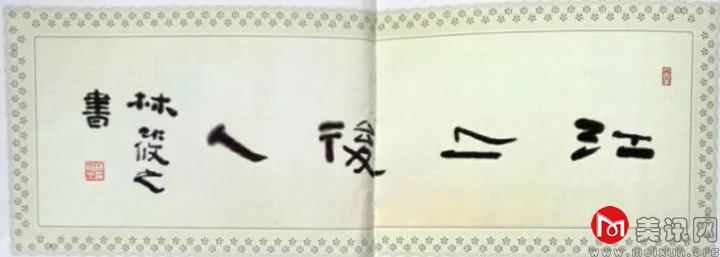 江上後人
林筱之
書
美讯网
www.meixun.org